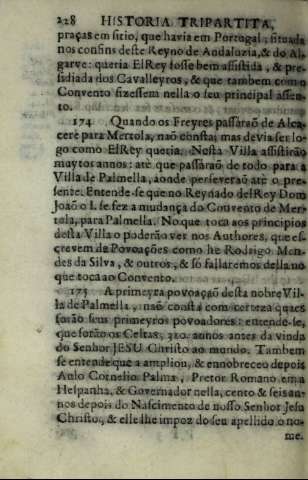 228 HISTORIA TRIPARTITA,
praças em sitio, que havia em Portugal, situada
nos confins deste Reyno de Andaluzia, & do Al-
garve: queria ElRey fosse bem assistida, & pre-
sidiada dos Cavalleyros, & que tambem com o
Convento fizessem nella o seu principal assen-
to.
174 Quando os Freyres passàraõ de Alca-
cere para Mertola, naõ consta; mas devia ser lo-
go como ElRey queria. Nesta Villa assistiraõ
muytos annos: atè que passàraõ de todo para a
Villa de Palmella, aonde perseveraõ atè o pre-
sente. Entende-se que no Reynado delRey Dom
Joaõ o I. se fez a mudança do Convento de Mer-
tola, para Palmella. No que toca aos principios
desta Villa o poderàõ ver nos Authores, que es-
crevem de Povoações como he Rodrigo Men-
des da Silva, & outros, & só fallaremos della no
que toca ao Convento.
175 A primeyra povoaçaõ desta nobre Vil-
la de Palmella, naõ consta com certeza quaes
foraõ seus primeyros povoadores: entende-se,
que foraõ os Celtas, 310. annos antes da vinda
do Senhor JESU Christo ao mundo. Tambem
se entende que a ampliou, & ennobreceo depois
Aulo Cornelio Palma, Pretor Romano em
Hespanha, & Governador nella, cento & seis an-
nos depois do Nascimento de nosso Senhor Jesu
Christo, & elle lhe impoz do seu apellido o no-
me.